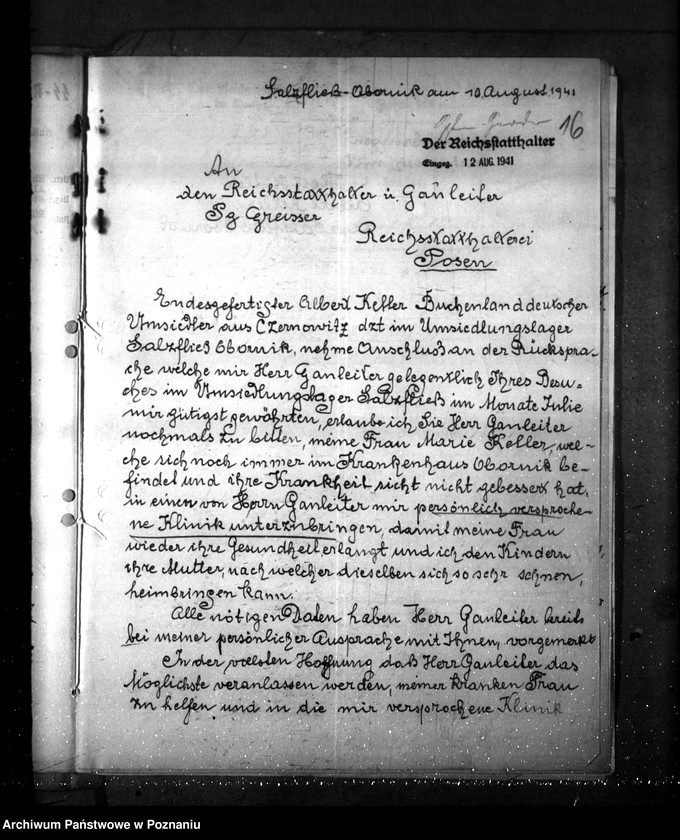 Salzfließ-Obornik am 10. August.1941
16
Der Reichsstatthalter
Eingeg. 12 AUG. 1941
An
den Reichsstatthalter u. Gauleiter
Pg Greisser
Reichsstatthalterei
Posen
Endesgefertigter Albert Keller Buchenlanddeutscher
Umsiedler aus Czernowitz dzt im Umsiedlungslager
Salzfließ Obornik, nehme Anschluß an der Rückspra-
che welche mir Herr Gauleiter gelegentlich Ihres Besu-
ches im Umsiedlungslager Salzfließ im Monate Julie
mir gütigst gewährten, erlaube ich, Sie Herr Gauleiter
nochmals zu bitten, meine Frau Marie Keller, wel-
che sich noch immer im Krankenhaus Obornik be-
findet und ihre Krankheit sicht nicht gebessert hat,
in einen von Herrn Gauleiter mir persönlich versproche-
ne Klinik unterzubringen, damit meine Frau
wieder ihre Gesundheit erlangt und ich den Kindern
ihre Mutter, nach welcher dieselben sich so sehr sehnen,
heimbringen kann.
Alle nötigen Daten haben Herr Gauleiter bereits
bei meiner persönlicher Aussprache mit Ihnen, vorgemerkt
In der vollsten Hoffnung daß Herr Gauleiter das
Möglichste veranlassen werden, meiner kranken Frau
zu helfen und in die mir versprochene Klinik
Archiwum Państwowe w Poznaniu